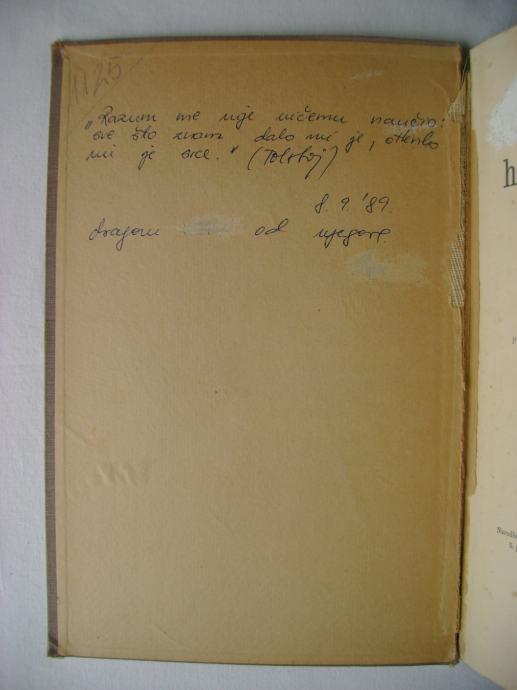 1125
„Razum me nije ničemu naučio:
sve što znam dalo mi je, otkrilo
mi je srce." (Tolstoj)
8. 9. '89.
dragom od njegove
h
p
Narodn